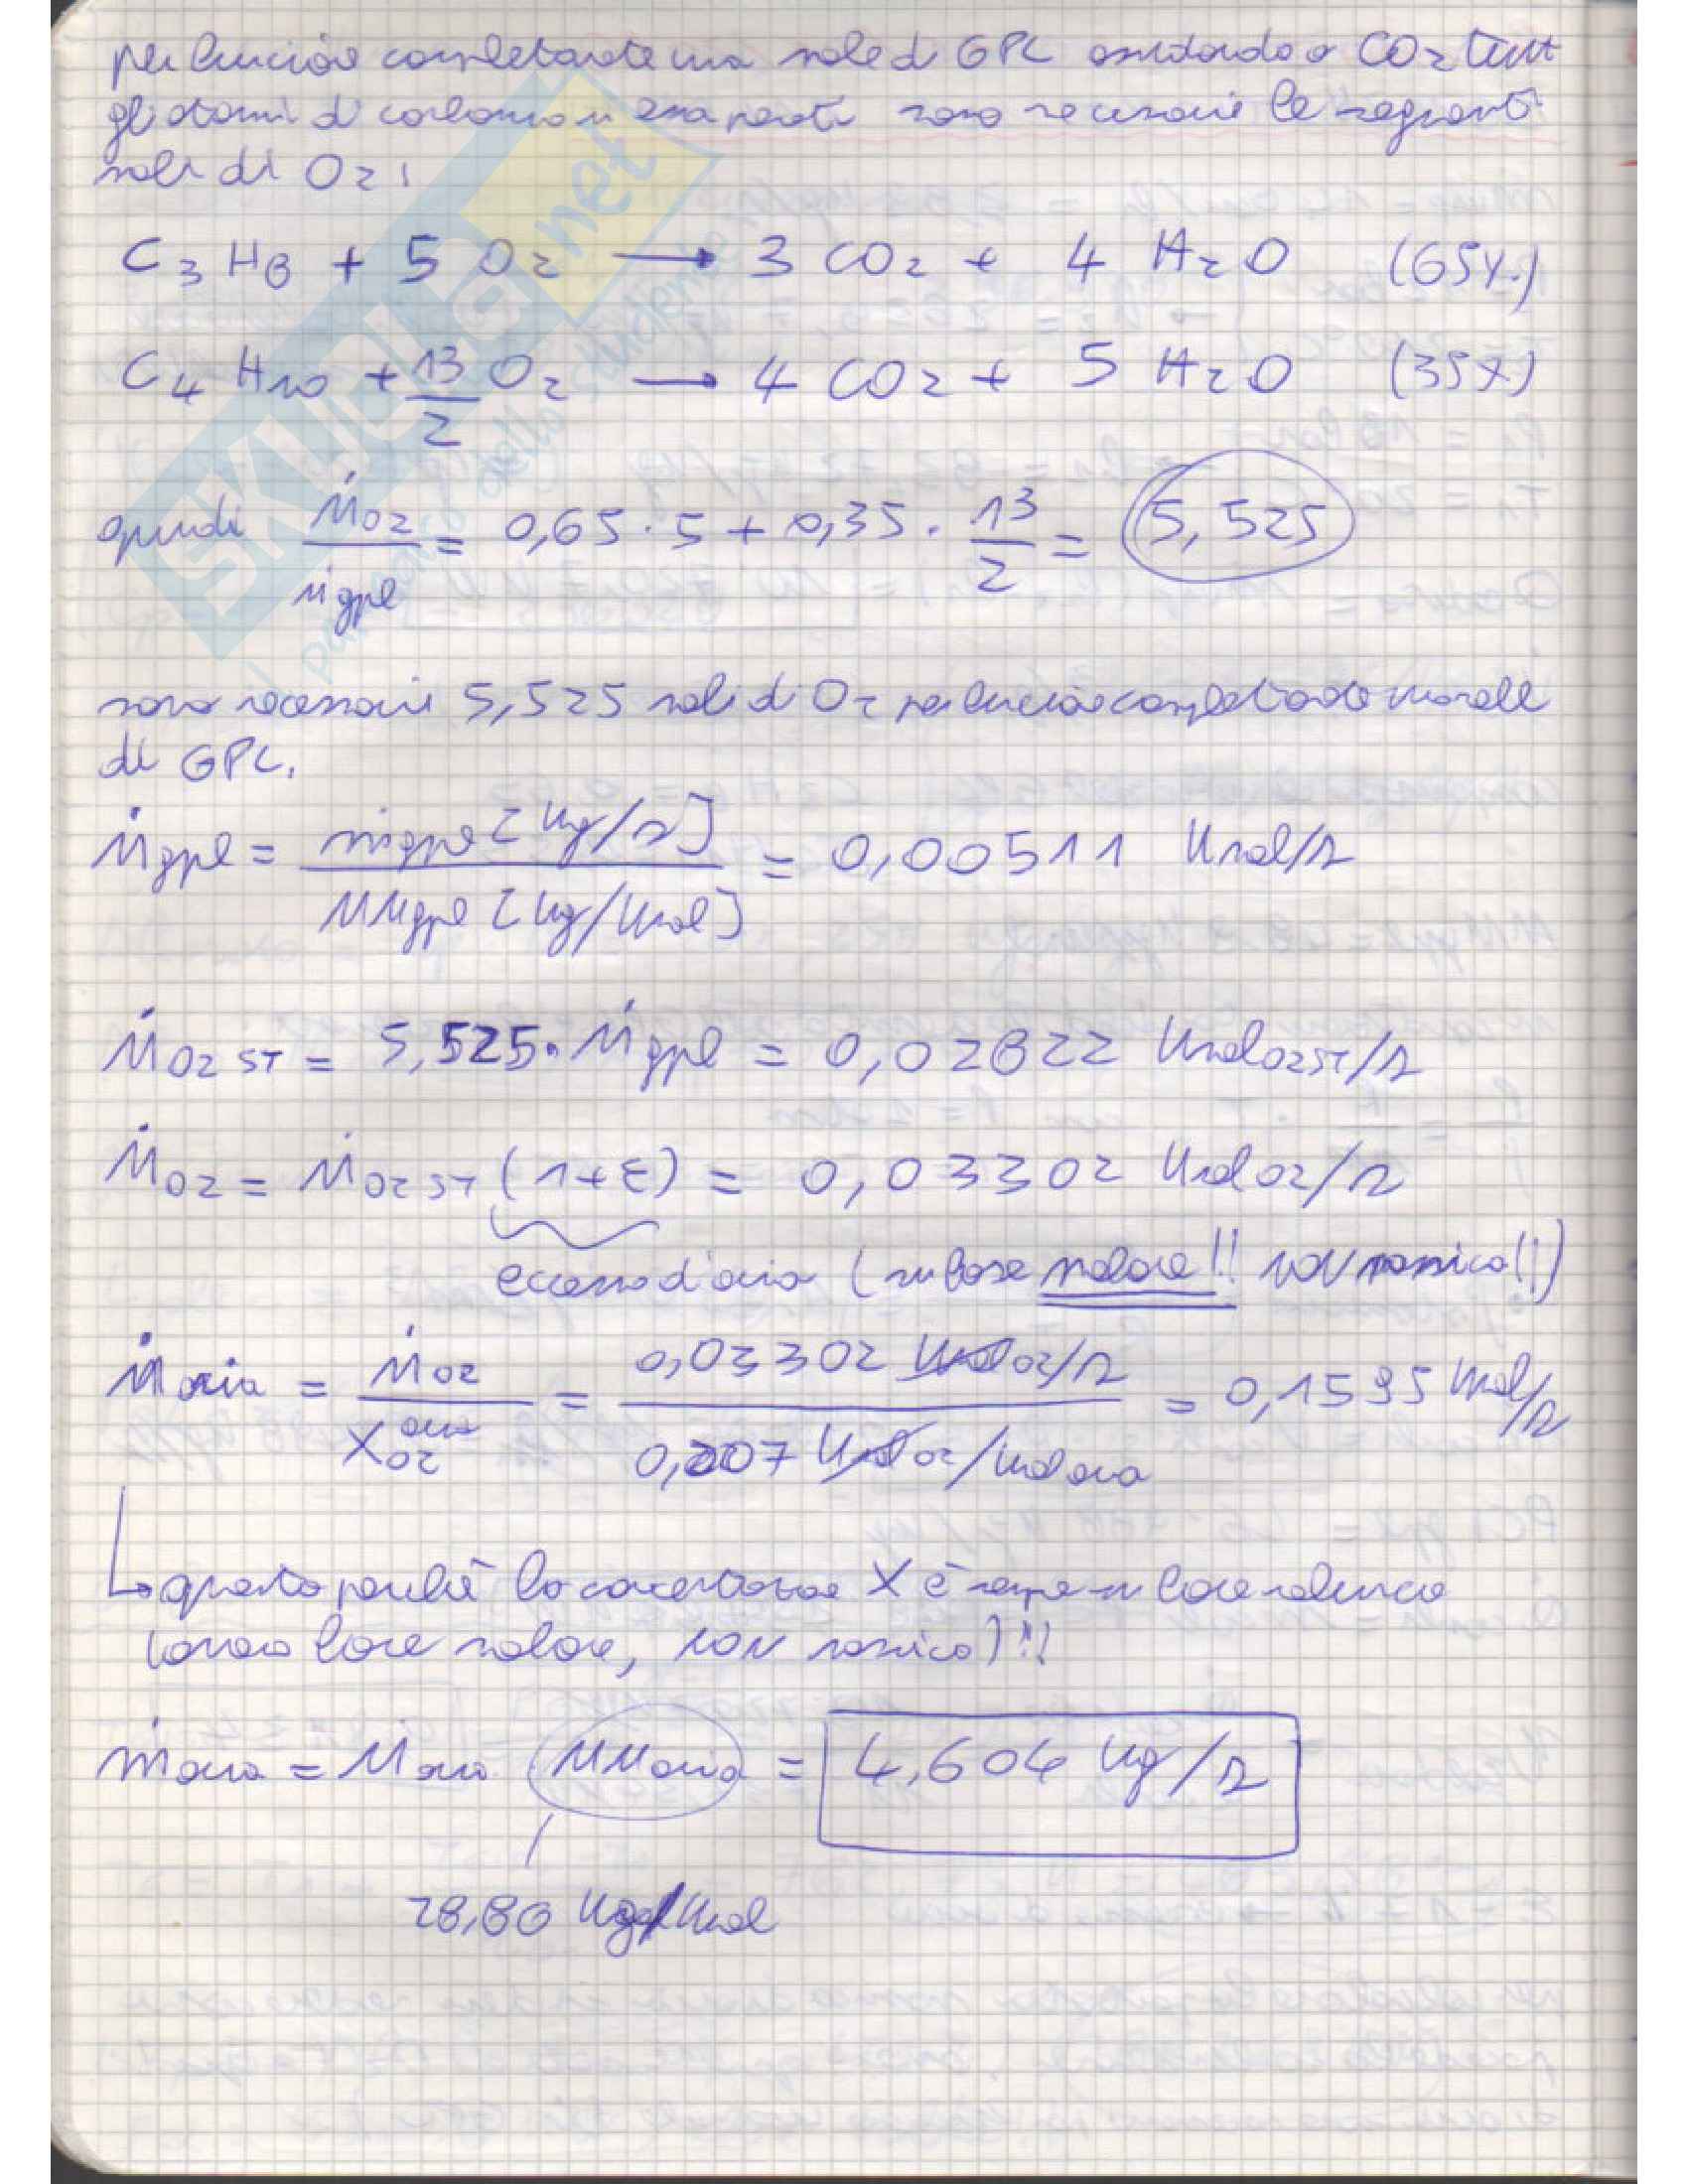 per bruciare completamente una mole di GPL ossidando a CO2 tutti
gli atomi di carbonio in essa presenti sono necessarie le seguenti
moli di O2:
C3H8 + 5 O2 → 3 CO2 + 4 H2O (65%)
C4H10 + 13/2 O2 → 4 CO2 + 5 H2O (35%)
quindi ṅO2/ṅgpl = 0,65 · 5 + 0,35 · 13/2 = 5,525
sono necessarie 5,525 moli di O2 per bruciare completamente una mole
di GPL.
ṅgpl = ṁgpl [kg/s] / MMgpl [kg/kmol] = 0,00511 kmol/s
ṅO2 ST = 5,525 · ṅgpl = 0,02822 kmolO2ST/s
ṅO2 = ṅO2 ST (1+ε) = 0,03302 kmolO2/s
eccesso d'aria (su base molare!! NON massica!!)
ṅaria = ṅO2 / XO2 aria = 0,03302 kmolO2/s / 0,207 kmolO2/kmolaria = 0,1595 kmol/s
↳ questo perché la concentrazione X è sempre su base volumica
(ovvero base molare, NON massica)!!!
ṁaria = ṅaria MMaria = 4,604 kg/s
28,86 kg/kmol
SKUOLA.net
il paradiso dello studente